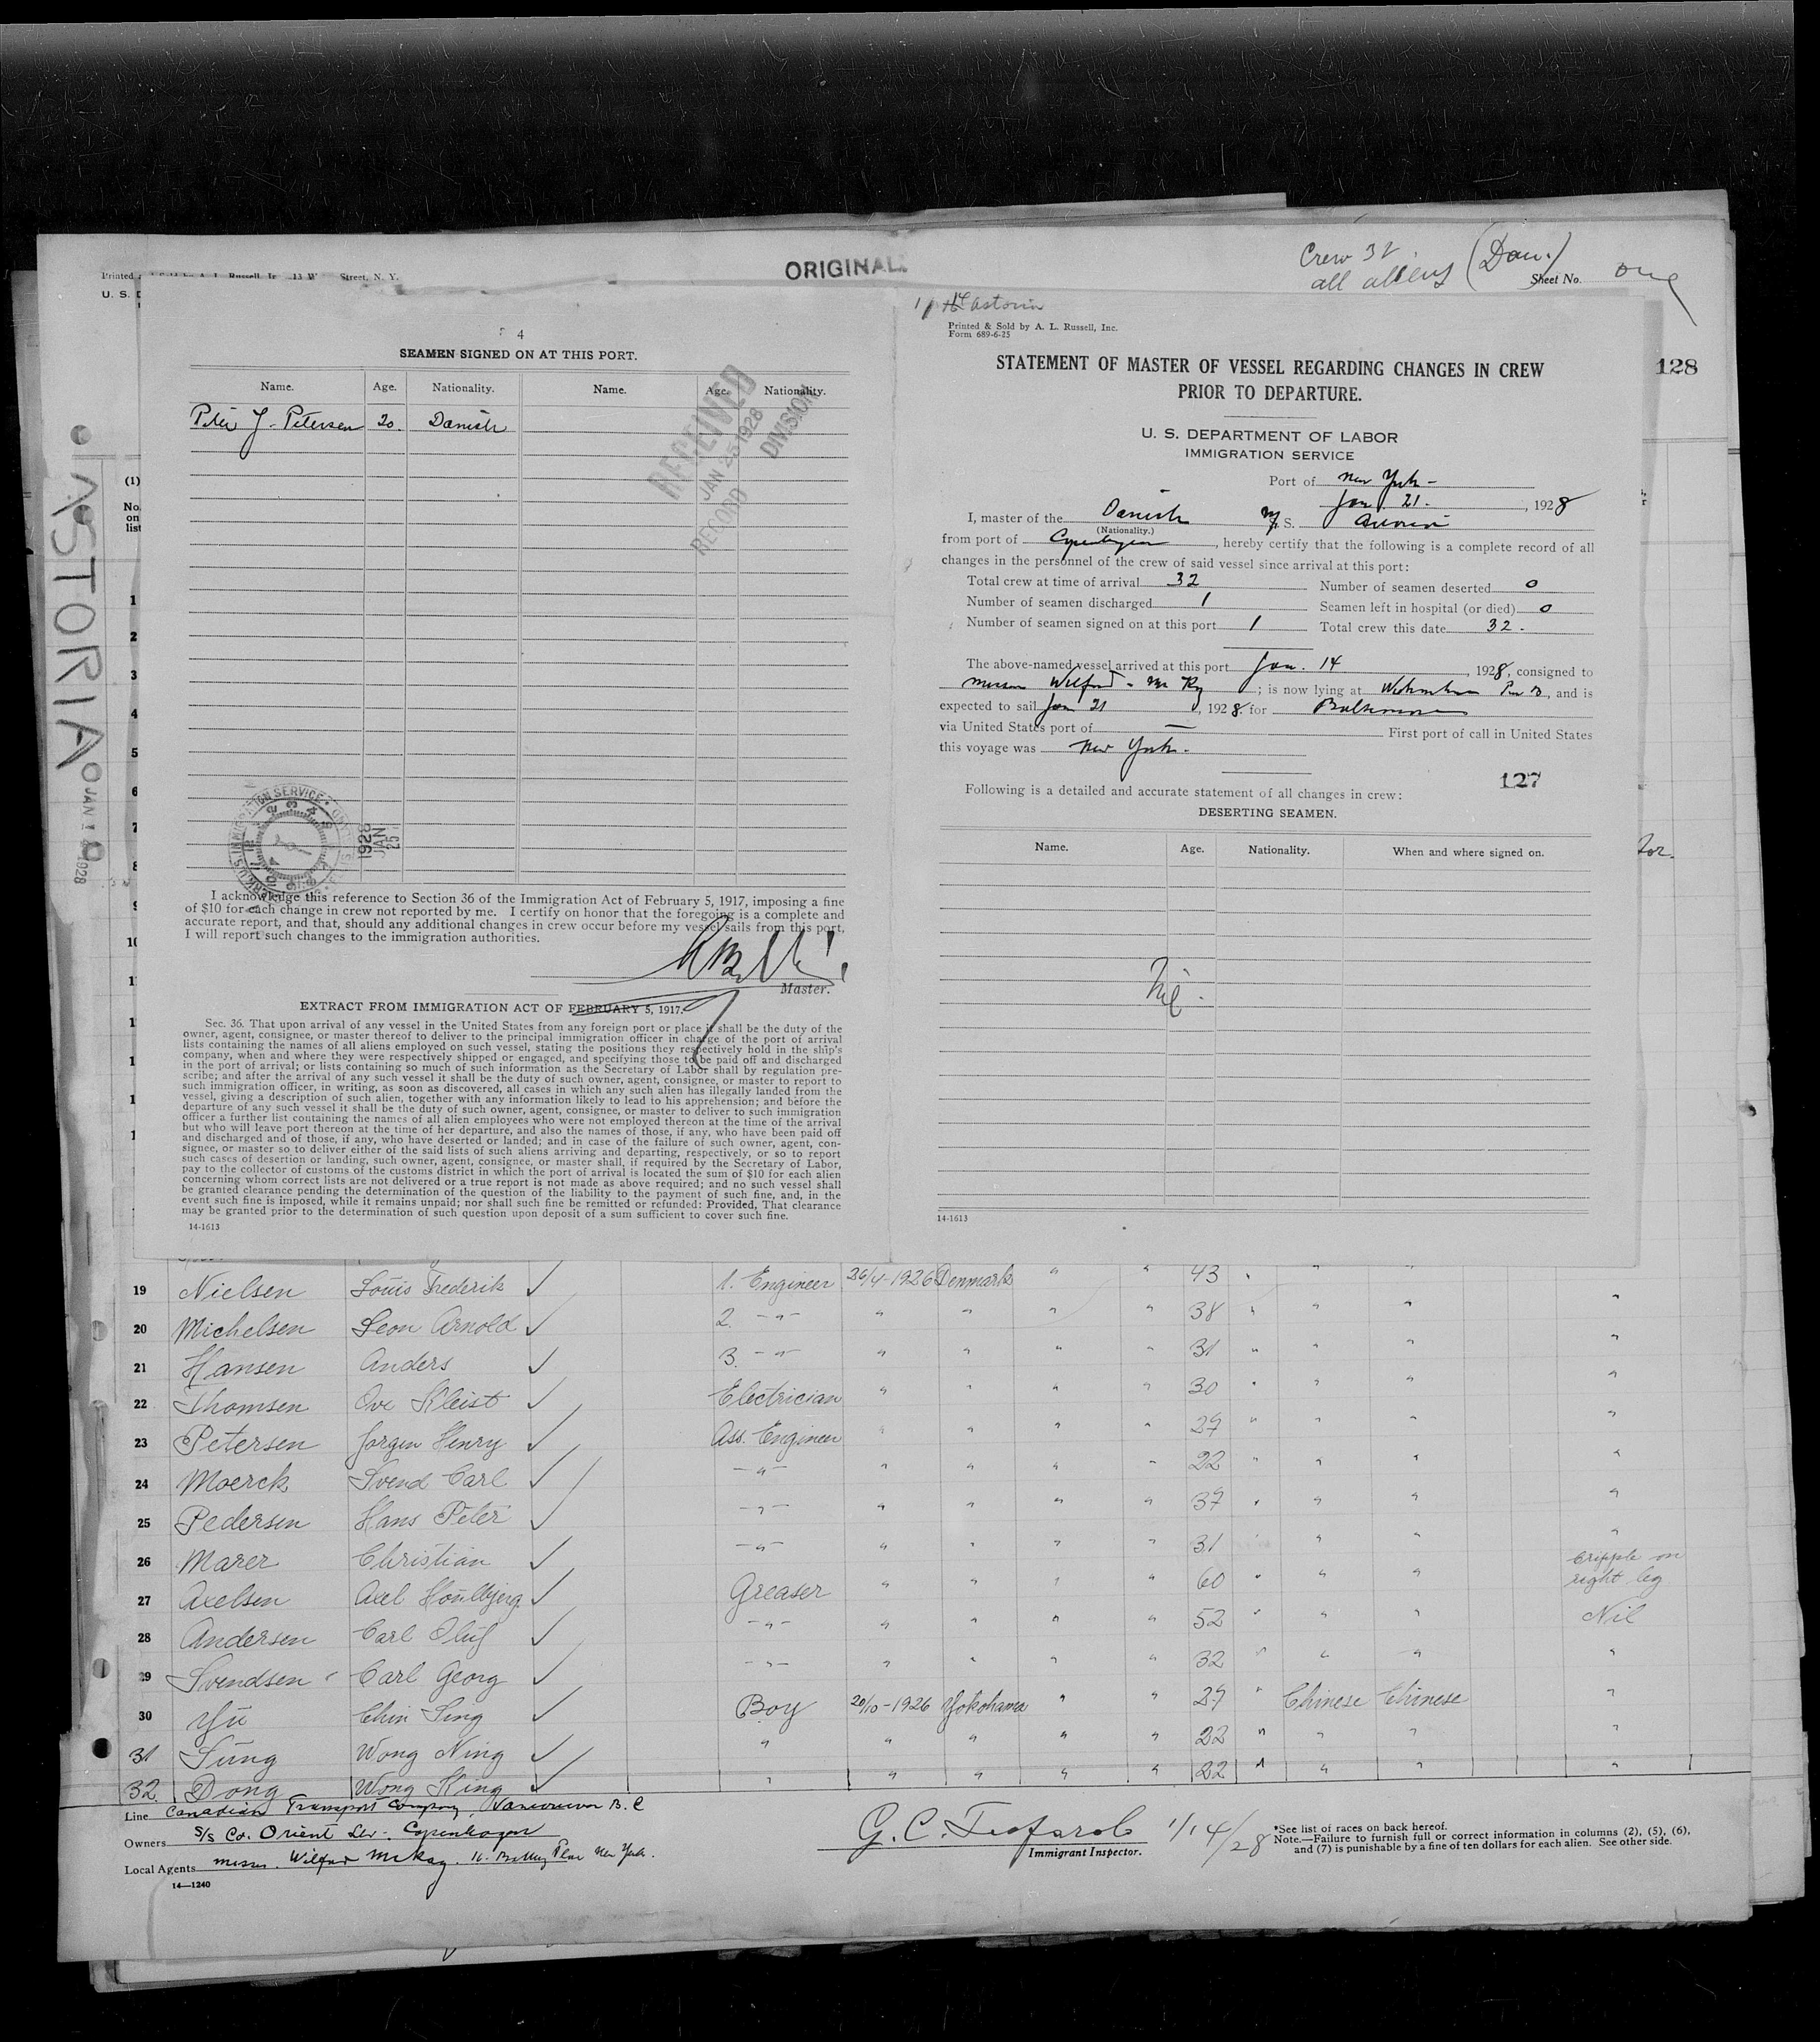 ORIGINAL.
Crew 32
all aliens
(Dan.)
Sheet No. one
128
ASTORIA
JAN 14 1928
(1)
No. on list
4
SEAMEN SIGNED ON AT THIS PORT.
Name. Age. Nationality. Name. Age. Nationality.
Peter J. Petersen 20. Danish
RECEIVED
JAN 25 1928
RECORD DIVISION
1928
JAN
25
I acknowledge this reference to Section 36 of the Immigration Act of February 5, 1917, imposing a fine
of $10 for each change in crew not reported by me. I certify on honor that the foregoing is a complete and
accurate report, and that, should any additional changes in crew occur before my vessel sails from this port,
I will report such changes to the immigration authorities.
Master.
EXTRACT FROM IMMIGRATION ACT OF FEBRUARY 5, 1917.
Sec. 36. That upon arrival of any vessel in the United States from any foreign port or place it shall be the duty of the
owner, agent, consignee, or master thereof to deliver to the principal immigration officer in charge of the port of arrival
lists containing the names of all aliens employed on such vessel, stating the positions they respectively hold in the ship's
company, when and where they were respectively shipped or engaged, and specifying those to be paid off and discharged
in the port of arrival; or lists containing so much of such information as the Secretary of Labor shall by regulation pre-
scribe; and after the arrival of any such vessel it shall be the duty of such owner, agent, consignee, or master to report to
such immigration officer, in writing, as soon as discovered, all cases in which any such alien has illegally landed from the
vessel, giving a description of such alien, together with any information likely to lead to his apprehension; and before the
departure of any such vessel it shall be the duty of such owner, agent, consignee, or master to deliver to such immigration
officer a further list containing the names of all alien employees who were not employed thereon at the time of the arrival
but who will leave port thereon at the time of her departure, and also the names of those, if any, who have been paid off
and discharged and of those, if any, who have deserted or landed; and in case of the failure of such owner, agent, con-
signee, or master so to deliver either of the said lists of such aliens arriving and departing, respectively, or so to report
such cases of desertion or landing, such owner, agent, consignee, or master shall, if required by the Secretary of Labor,
pay to the collector of customs of the customs district in which the port of arrival is located the sum of $10 for each alien
concerning whom correct lists are not delivered or a true report is not made as above required; and no such vessel shall
be granted clearance pending the determination of the question of the liability to the payment of such fine, and, in the
event such fine is imposed, while it remains unpaid; nor shall such fine be remitted or refunded: Provided, That clearance
may be granted prior to the determination of such question upon deposit of a sum sufficient to cover such fine.
14-1613
Astoria
Printed & Sold by A. L. Russell, Inc.
Form 689-6-25
STATEMENT OF MASTER OF VESSEL REGARDING CHANGES IN CREW
PRIOR TO DEPARTURE.
U. S. DEPARTMENT OF LABOR
IMMIGRATION SERVICE
Port of New York -
Jan. 21. , 1928
I, master of the Danish M. S. Astoria
(Nationality.)
from port of Copenhagen, hereby certify that the following is a complete record of all
changes in the personnel of the crew of said vessel since arrival at this port:
Total crew at time of arrival 32 Number of seamen deserted 0
Number of seamen discharged 1 Seamen left in hospital (or died) 0
Number of seamen signed on at this port 1 Total crew this date 32.
The above-named vessel arrived at this port Jan. 14, 1928, consigned to
Messrs Wilford - McKay; is now lying at Pier B, and is
expected to sail Jan 21, 1928. for Baltimore
via United States port of — First port of call in United States
this voyage was New York.
127
Following is a detailed and accurate statement of all changes in crew:
DESERTING SEAMEN.
Name. Age. Nationality. When and where signed on.
Nil.
14-1613
19 Nielsen Louis Frederik ✓ 1. Engineer 26/4-1926 Denmark " " 43 " " "
20 Michelsen Leon Arnold ✓ 2. -"- " " " " 38 " " " "
21 Hansen Anders ✓ 3. -"- " " " " 31 " " " "
22 Thomsen Ove Kleist ✓ Electrician " " " " 30 " " " "
23 Petersen Jorgen Henry ✓ Ass. Engineer " " " " 29 " " " "
24 Moerck Svend Carl ✓ -"- " " " " 22 " " " "
25 Pedersen Hans Peter ✓ -"- " " " " 37 " " " "
26 Marer Christian ✓ -"- " " " " 31 " " "
27 Axelsen Axel Houlbjerg ✓ Greaser " " " " 60 " " " Cripple on right leg
28 Andersen Carl Oluf ✓ -"- " " " " 52 " " " Nil
29 Svendsen Carl Georg ✓ -"- " " " " 32 " " " "
30 Yu Chin Sing ✓ Boy 20/10-1926 Yokohama " " 29 " Chinese Chinese "
31 Sung Wong Ning ✓ " " " " " 22 " " " "
32. Dong Wong King ✓ " " " " " 22 " " " "
Line Canadian Transport Company, Vancouver B.C
Owners S/S Co. Orient Ltd - Copenhagen
Local Agents Messrs. Wilford McKay. 16 Battery Place New York.
14—1240
1/14/28
Immigrant Inspector.
*See list of races on back hereof.
Note.—Failure to furnish full or correct information in columns (2), (5), (6),
and (7) is punishable by a fine of ten dollars for each alien. See other side.